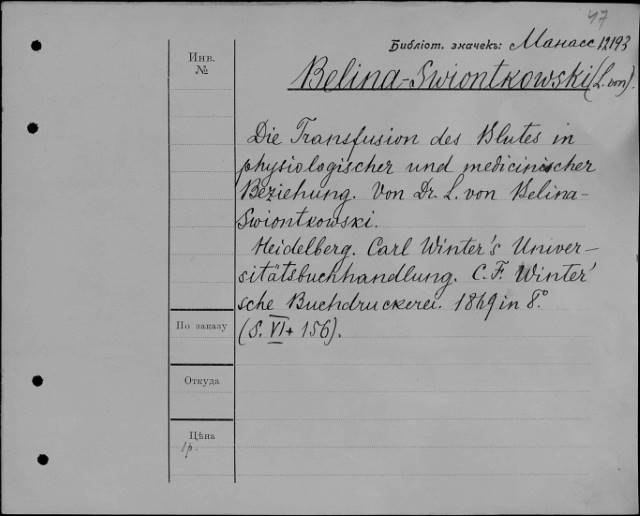 47
Библіот. значекъ: Манасс 12193
Инв.
№
Belina-Swiontkowski (L. von).
Die Transfusion des Blutes in
physiologischer und medicinischer
Beziehung. Von Dr. L. von Belina-
Swiontkowski.
Heidelberg. Carl Winter's Univer-
sitätsbuchhandlung. C. F. Winter'
sche Buchdruckerei. 1869 in 8°.
(S. VI + 156).
По заказу
Откуда
Цѣна
1р.